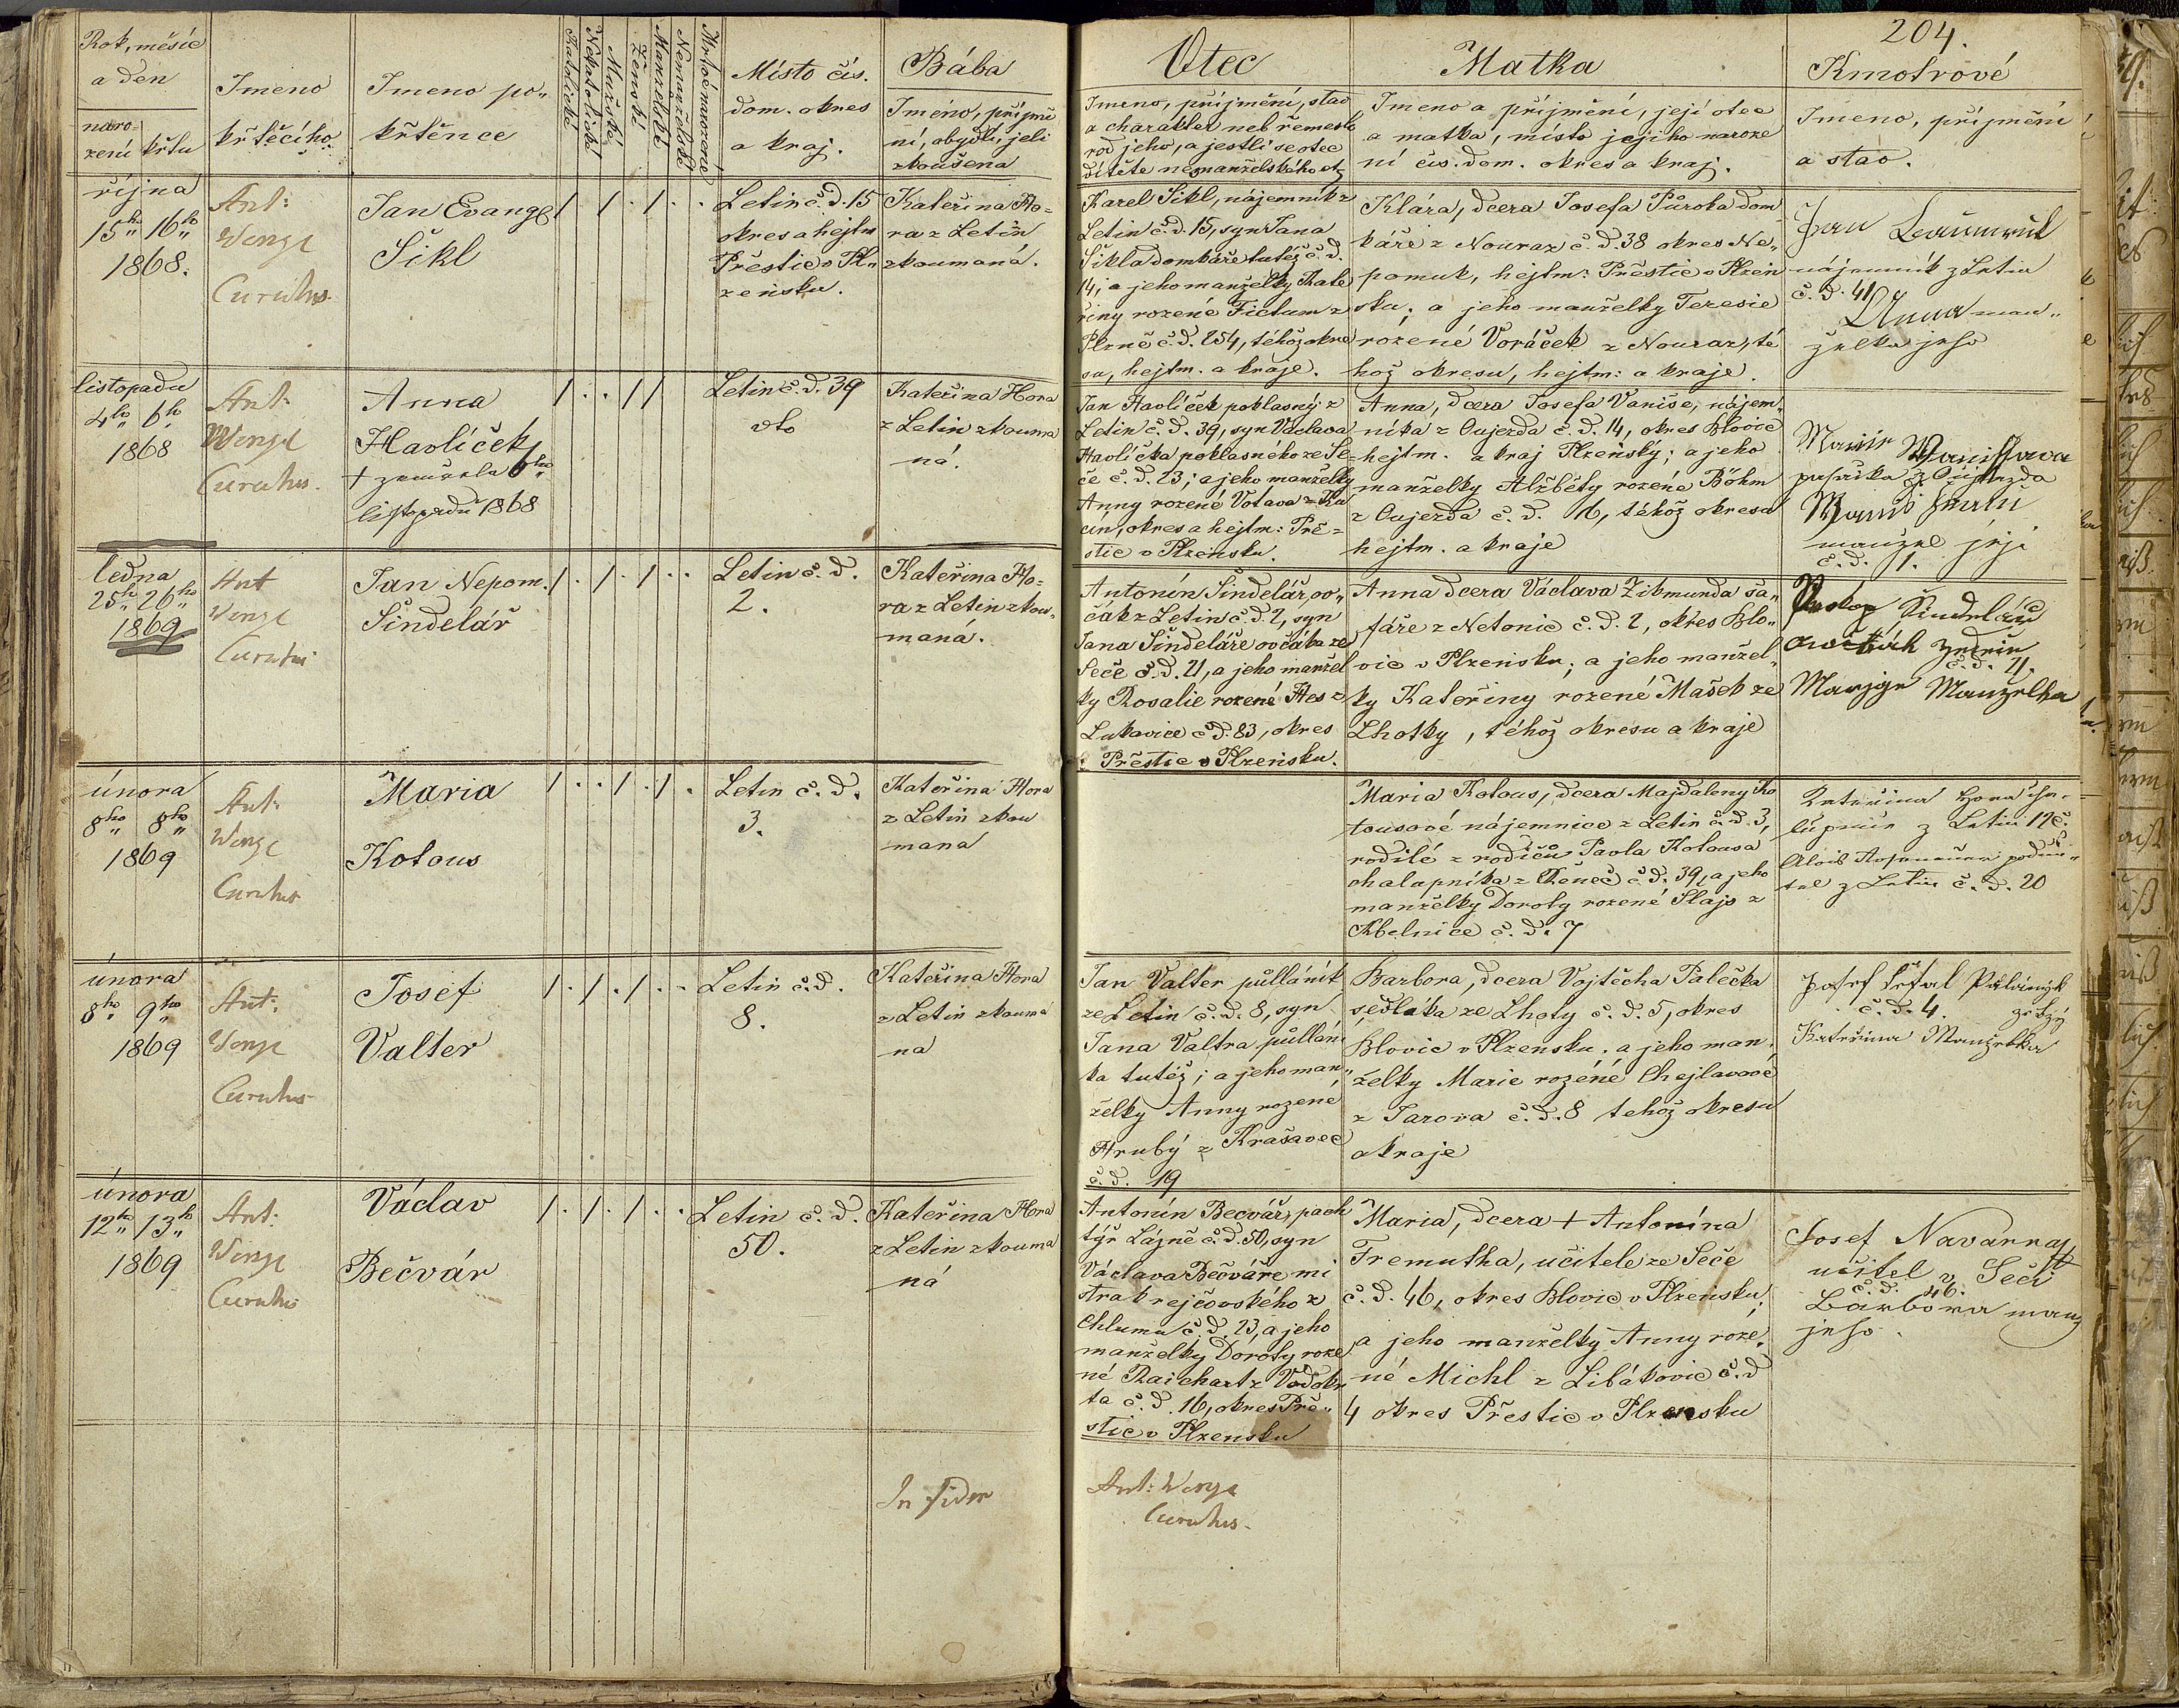 204.
Rok, měsíc
a den
naro=
zení
křtu
Jmeno
křtěcího
Jmeno po„
křtěnce
Katolické
Nekatolické
Mužské
Ženské
Manželské
Nemanželské
Mrtvě narozené
Místo čís.
dom. okres
a kraj.
Bába
Jmeno, příjmě
ní, obydlí, jeli
zkoušena
Otec
Jmeno, příjmění, stav
a charakter neb řemeslo
rod jeho, a jestli se otec
dítěte nemanželského
Matka
Jmeno a příjmění, její otec
a matka, místo jejího naroze
ní čís. dom. okres a kraj.
Kmotrové
Jmeno, příjmění
a stav.
října
15ho 16ho
1868.
Ant:
Wenzl
Curatus.
Jan Evang
Šikl
/ . / . / . .
Letin č. d. 15
okres a hejtm
Přestic v Pl„
zensku.
Kateřina Ho=
ra z Letin
zkoumaná.
Karel Šikl, nájemník z
Letin č. d. 15, syn Jana
Šikla domkáře tutéž č. d.
14; a jeho manželky Kate
řiny rozené Fictum z
Plzně č. d. 254, téhož okre
su, hejtm. a kraje.
Klára, dcera Josefa Půroka dom
káře z Nouraz č. d. 38 okres Ne„
pomuk, hejtm: Přestic v Plzeň
sku; a jeho manželky Teresie
rozené Voráček z Nouraz, té
hož okresu, hejtm: a kraje.
Jan
nájemník z Letin
č. d. 41
Anna man„
želka jeho
listopadu
4ho 6ho
1868
Ant:
Wenzl
Curatus.
Anna
Havlíček
+ zemřela 6ho
listopadu 1868
/ . . / /
Letin č. d. 39
dto
Kateřina Hora
z Letin zkouma
ná.
Jan Havlíček poklasný z
Letin č. d. 39, syn Václava
Havlíčka poklasného ze Se=
če č. d. 23; a jeho manželky
Anny rozené Votava z
okres a hejtm: Pře=
stic v Plzensku.
Anna, dcera Josefa Vaniše, nájem„
níka z Oujezda č. d. 14, okres Blovic
hejtm. a kraj Plzeňský; a jeho
manželky Alžběty rozené Böhm
z Oujezda č. d. 16, téhož okresa
hejtm. a kraje
z Oujezda
manžel její
č. d. 1.
ledna
25ho 26ho
1869
Ant
Wenzl
Curatus
Jan Nepom.
Šindelář
/ . / . / . .
Letin č. d.
2.
Kateřina Ho=
ra z Letin zkou„
maná.
Antonín Šindelář, ov„
čák z Letin č. d. 2, syn
Jana Šindeláře ovčáka ze
Seče č. d. 21, a jeho manžel
ky Rosalie rozené Hes z
Lukavice č. d. 83, okres
Přestic v Plzeňsku.
Anna dcera Václava Zikmunda ša„
fáře z Netonic č. d. 2, okres Blo„
vic v Plzensku; a jeho manžel„
ky Kateřiny rozené Mašek ze
Lhotky, téhož okresu a kraje
Prokop Šindelář
č. d. 21.
Manželka
února
8ho 8ho
1869
Ant:
Wenzl
Curatus
Maria
Kotous
/ . . / . / .
Letin č. d.
3.
Kateřina Hora
z Letin zkou
maná
Maria Kotous, dcera Majdaleny Ko
tousové nájemnice z Letin č. d. 3,
rodilé z rodičů Pavla Kotousa
chalupníka z Řeneč č. d. 39, a jeho
manželky Doroty rozené Šlajs z
Kbelnice č. d. 7
Kateřina Hora cha„
lupnice z Letin 12 č.
Alois
z Letin č. d. 20
února
8ho 9ho
1869
Ant:
Wenzl
Curatus
Josef
Valter
/ . / . / . .
Letin č. d.
8.
Kateřina Hora
z Letin zkoumá
na
Jan Valter půlláník
ze Letin č. d. 8, syn
Jana Valtra půllán„
ka tutéž; a jeho man„
želky Anny rozené
Hrubý z Krašovec
č. d. 19
Barbora, dcera Vojtěcha Palečka
sedláka ze Lhoty č. d. 5, okres
Blovic v Plzensku. a jeho man„
želky Marie rozéné Chejlavové
z Jarova č. d. 8 tehož okresu
a kraje
Josef
č. d. 4.
Kateřina Manželka
února
12ho 13ho
1869
Ant:
Wenzl
Curatus
Václav
Bečvár
/ . / . / . .
Letin č. d.
50.
Kateřina Hora
z Letin zkouma
ná
Antonín Bečvář, pach
týř Lázně č. d. 50, syn
Václava Bečváře mi
stra krejčovského z
Chluma č. d. 23, a jeho
manželky Doroty roze
né Raichart z Vodokr
ta č. d. 16, okres Pře„
stic v Plzensku
Maria, dcera + Antonína
Tremutha, učitele ze Seče
č. d. 46, okres Blovic v Plzensku;
a jeho manželky Anny roze„
né Michl z Libákovic č. d
4 okres Přestic v Plzensku
Josef Navarra
učitel v Seči
č. d. 46.
Barbora man
jeho.
In fidem
Ant: Wenzl
Curatus.